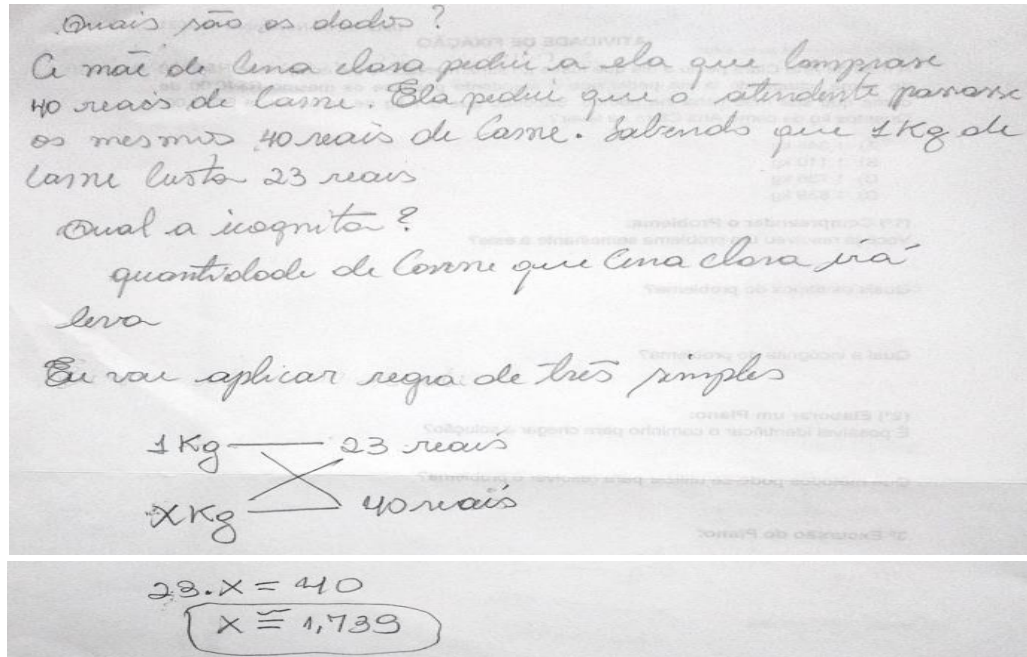 Quais são os dados?
A mãe de Ana clara pediu a ela que comprase
40 reais de carne. Ela pediu que o atendente passasse
os mesmos 40 reais de carne. Sabendo que 1Kg de
carne custa 23 reais
Qual a icognita?
quantidade de carne que Ana clara irá
leva
Eu vou aplicar regra de três simples
1Kg 23 reais
XKg 40 reais
23.X = 40
X ≅ 1,739